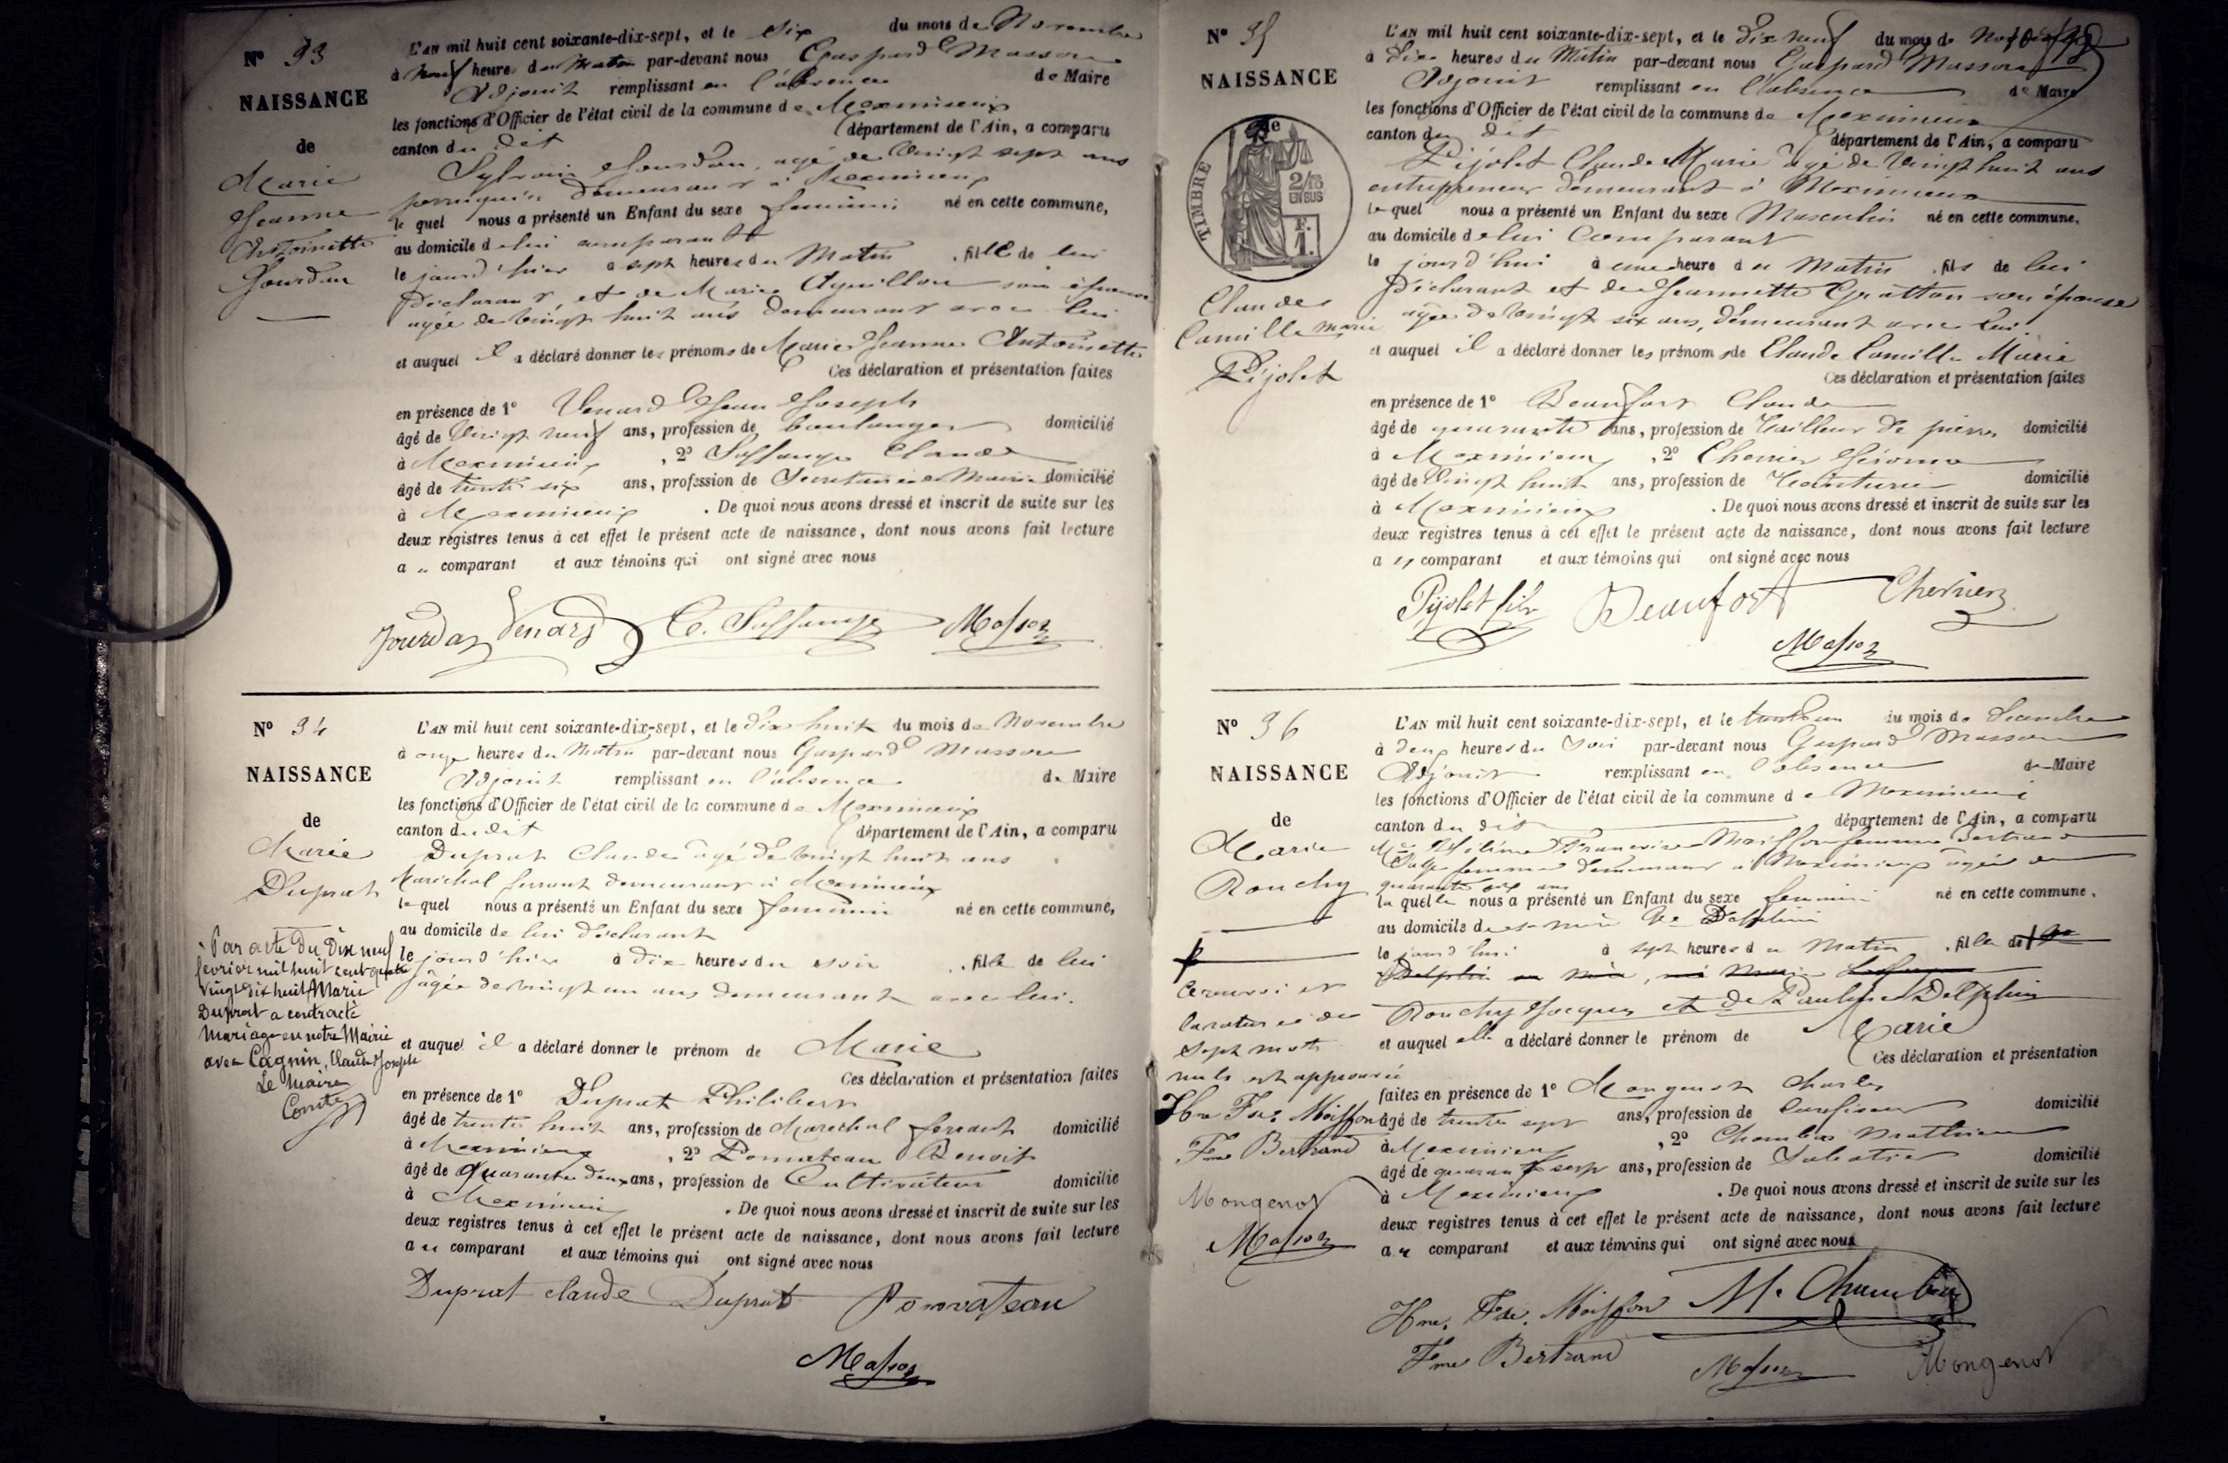 N° 93
NAISSANCE
de
Marie
Jeanne
Antoinette
Jourdan
L'AN mil huit cent soixante-dix-sept, et le six du mois de Novembre
à neuf heures du Matin par-devant nous Gaspard Masson
Adjoint remplissant en l'absence de Maire
les fonctions d'Officier de l'état civil de la commune de Meximieux
canton du dit département de l'Ain, a comparu
Sylvain Jourdan, agé de vingt sept ans
perruquier demeurant à Meximieux
le quel nous a présenté un Enfant du sexe feminin né en cette commune,
au domicile de lui comparant
le jourd'hier à sept heures du Matin , fille de lui
déclarant, et de Marie Aguillon son épouse
agée de vingt huit ans demeurant avec lui
et auquel il a déclaré donner les prénoms de Marie Jeanne Antoinette
Ces déclaration et présentation faites
en présence de 1° Venard Jean Joseph
âgé de vingt neuf ans, profession de boulanger domicilié
à Meximieux , 2° Claude
âgé de trente six ans, profession de Secretaire de Mairie domicilié
à Meximieux . De quoi nous avons dressé et inscrit de suite sur les
deux registres tenus à cet effet le présent acte de naissance, dont nous avons fait lecture
au comparant et aux témoins qui ont signé avec nous
Jourdan Venard C. Masson
N° 94
NAISSANCE
de
Marie
Duprat
Par acte du Dix neuf
fevrier mil huit cent quatre
vingt dix huit Marie
Duprat a contracté
Mariage en notre Mairie
avec Cagnin, Claude Joseph
Le Maire
L'AN mil huit cent soixante-dix-sept, et le dix huit du mois de Novembre
à onze heures du Matin par-devant nous Gaspard Masson
Adjoint remplissant en l'absence de Maire
les fonctions d'Officier de l'état civil de la commune de Meximieux
canton du dit département de l'Ain, a comparu
Duprat Claude agé de vingt huit ans
Maréchal ferrant demeurant à Meximieux
le quel nous a présenté un Enfant du sexe feminin né en cette commune,
au domicile de lui déclarant
le jourd'hier à dix heures du soir , fille de lui
âgée de vingt un ans demeurant avec lui.
et auquel il a déclaré donner le prénom de Marie
Ces déclaration et présentation faites
en présence de 1° Duprat Philibert
âgé de trente huit ans, profession de Marechal ferrant domicilié
à Meximieux , 2° Ponvateau Benoit
âgé de quarante deux ans, profession de Cultivateur domicilié
à Meximieux . De quoi nous avons dressé et inscrit de suite sur les
deux registres tenus à cet effet le présent acte de naissance, dont nous avons fait lecture
au comparant et aux témoins qui ont signé avec nous
Duprat claude Duprat Ponvateau
Masson
N° 95
NAISSANCE
de
TIMBRE
2/10
EN SUS
F.
1.
Claude
Camille Marie
Pijolet
L'AN mil huit cent soixante-dix-sept, et le dix neuf du mois de
à dix heures du Matin par-devant nous Gaspard Masson
Adjoint remplissant en l'absence de Maire
les fonctions d'Officier de l'état civil de la commune de Meximieux
canton du dit département de l'Ain, a comparu
Pijolet Claude Marie agé de vingt huit ans
entrepreneur demeurant à Meximieux
le quel nous a présenté un Enfant du sexe Masculin né en cette commune.
au domicile de lui Comparant
le jourd'hui à une heure du Matin , fils de lui
déclarant et de Jeannette Gratton son épouse
agée de vingt six ans, demeurant avec lui.
et auquel il a déclaré donner les prénoms de Claude Camille Marie
Ces déclaration et présentation faites
en présence de 1° Beaufort Claude
âgé de quarante ans, profession de Tailleur de pierres domicilié
à Meximieux , 2°
âgé de vingt huit ans, profession de domicilié
à Meximieux . De quoi nous avons dressé et inscrit de suite sur les
deux registres tenus à cet effet le présent acte de naissance, dont nous avons fait lecture
au comparant et aux témoins qui ont signé avec nous
Pijolet fils Beaufort
Masson
N° 96
NAISSANCE
de
Marie
Ronchy
sept mots
nuls est approuvée
Hne Fse Moiffon
Fme Bertrand
Mongenot
Masson
L'AN mil huit cent soixante-dix-sept, et le trente un du mois de
à deux heures du soir par-devant nous Gaspard Masson
Adjoint remplissant en l'absence de Maire
les fonctions d'Officier de l'état civil de la commune de Meximieux
canton du dit département de l'Ain, a comparu
Françoise Moiffon femme Bertrand
Sage femme demeurant à Meximieux agée de
quarante six ans
la quelle nous a présenté un Enfant du sexe feminin né en cette commune.
au domicile de sa mère Delphin
le jourd'hui à sept heures du Matin , fille de
Ronchy Jacques et de Pauline Delphin
et auquel elle a déclaré donner le prénom de Marie
Ces déclaration et présentation
faites en présence de 1° Mongenot Charles
âgé de trente sept ans, profession de Confiseur domicilié
à Meximieux , 2° Mathieu
âgé de quarante sept ans, profession de Sabotier domicilié
à Meximieux . De quoi nous avons dressé et inscrit de suite sur les
deux registres tenus à cet effet le présent acte de naissance, dont nous avons fait lecture
au comparant et aux témoins qui ont signé avec nous
Hne. Fse. Moiffon M.
Fme Bertrand Masson Mongenot